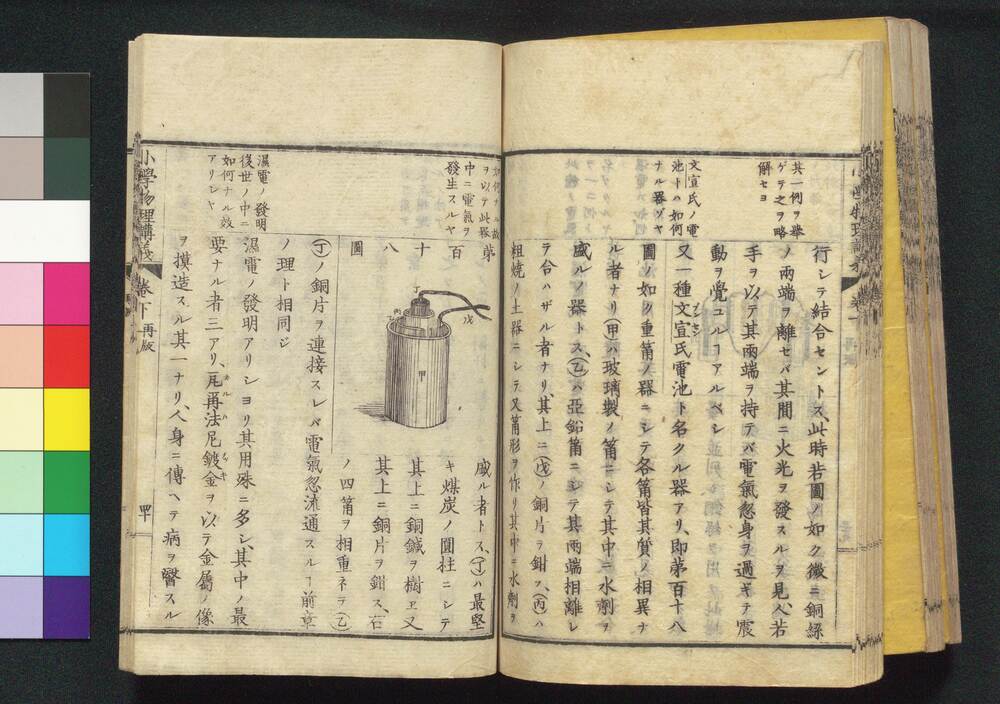 其一例ヲ擧
ゲテ之ヲ略
解セヨ
行シテ結合セントス、此時若圖ノ如ク微ニ銅線
ノ兩端ヲ離セバ其間ニ火光ヲ發スルヲ見、人若
手ヲ以テ其兩端ヲ持テバ電氣忽身ヲ過ギテ震
動ヲ覺ユルヿアルベシ
文宣氏ノ電
池トハ如何
ナル器ゾヤ
又一種文宣氏電池ト名クル器アリ、即第百十八
圖ノ如ク重筩ノ器ニシテ各筩皆其質ノ相異ナ
ル者ナリ(甲)ハ玻璃製ノ筩ニシテ其中ニ水劑ヲ
盛ルノ器トス、(乙)ハ亞鉛筩ニシテ其兩端相離レ
テ合ハザル者ナリ、其上ニ(戊)ノ銅片ヲ鉗ヲ、(丙)ハ
粗燒ノ土器ニシテ又筩形ヲ作リ其中ニ水劑ヲ
如何ナル故
ヲ以テ此器
中ニ電氣ヲ
發生スルヤ
第百十八圖
丁
戊
甲
盛ル者トス、(丁)ハ最堅
キ煤炭ノ圓柱ニシテ
其上ニ銅鍼ヲ樹ヱ又
其上ニ銅片ヲ鉗ス、右
ノ四筩ヲ相重ネテ(乙)
(丁)ノ銅片ヲ連接スレバ電氣忽流通スルヿ前章
ノ理ト相同ジ
濕電ノ發明
後世ノ中ニ
如何ナル效
アリシヤ
濕電ノ發明アリシヨリ其用殊ニ多シ、其中ノ最
要ナル者三アリ、瓦再法尼鍍金ヲ以テ金屬ノ像
ヲ摸造スル其一ナリ、人身ニ傳ヘテ病ヲ醫スル
小學物理講義
卷下
再版
四十